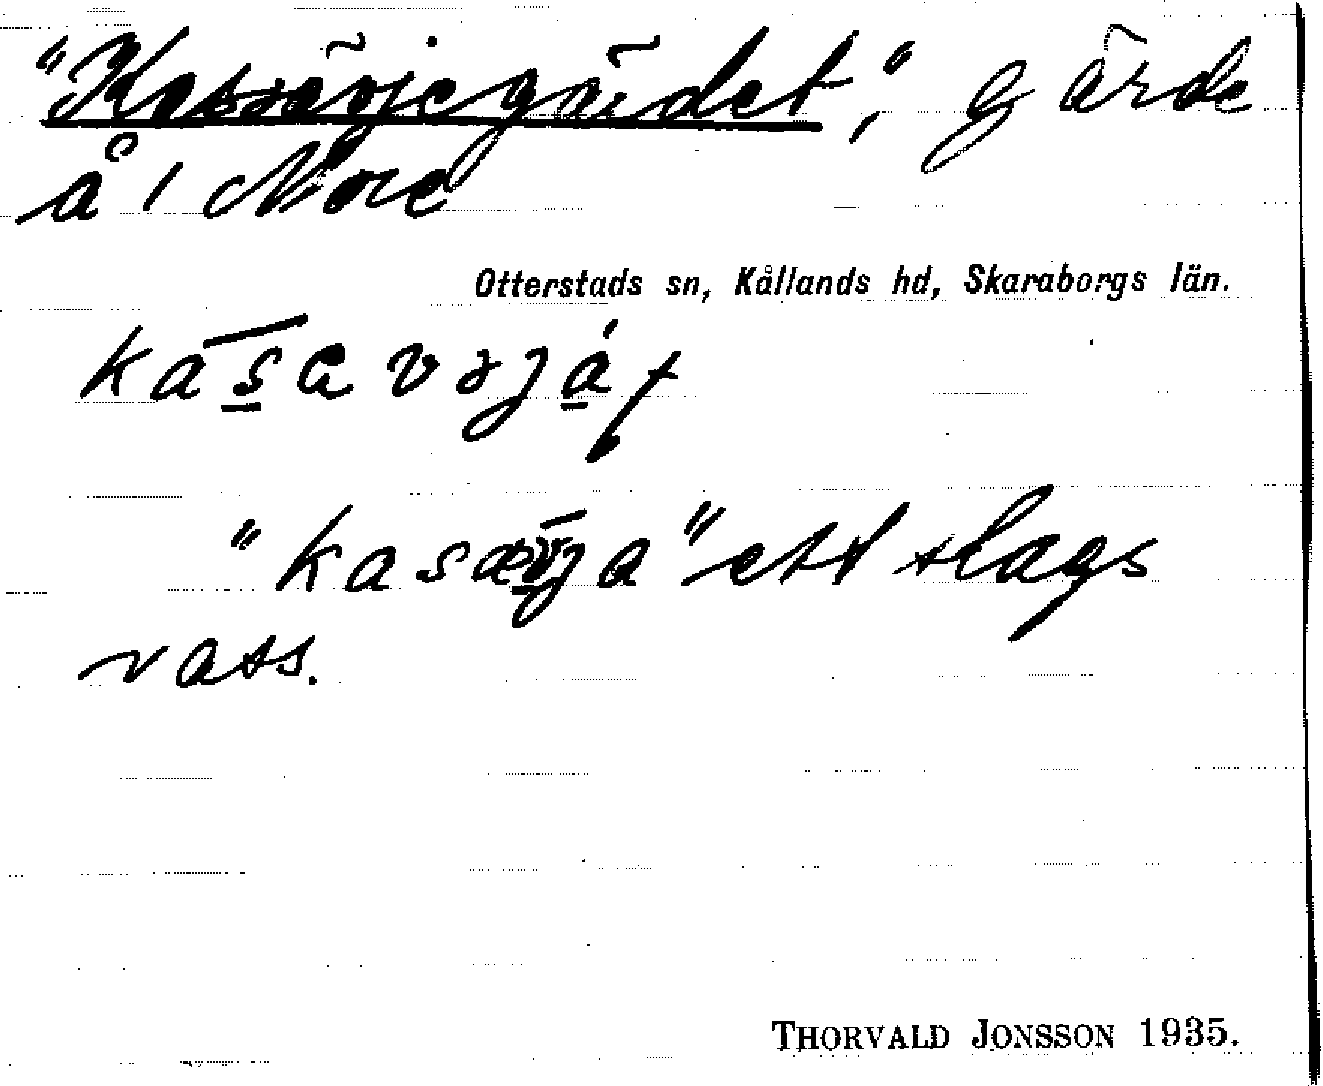 "Kassävjegärdet", gärde
å 1 More
Otterstads sn, Kållands hd, Skaraborgs län.
"kasævja" ett slags
vass.
THORVALD JONSSON 1935.